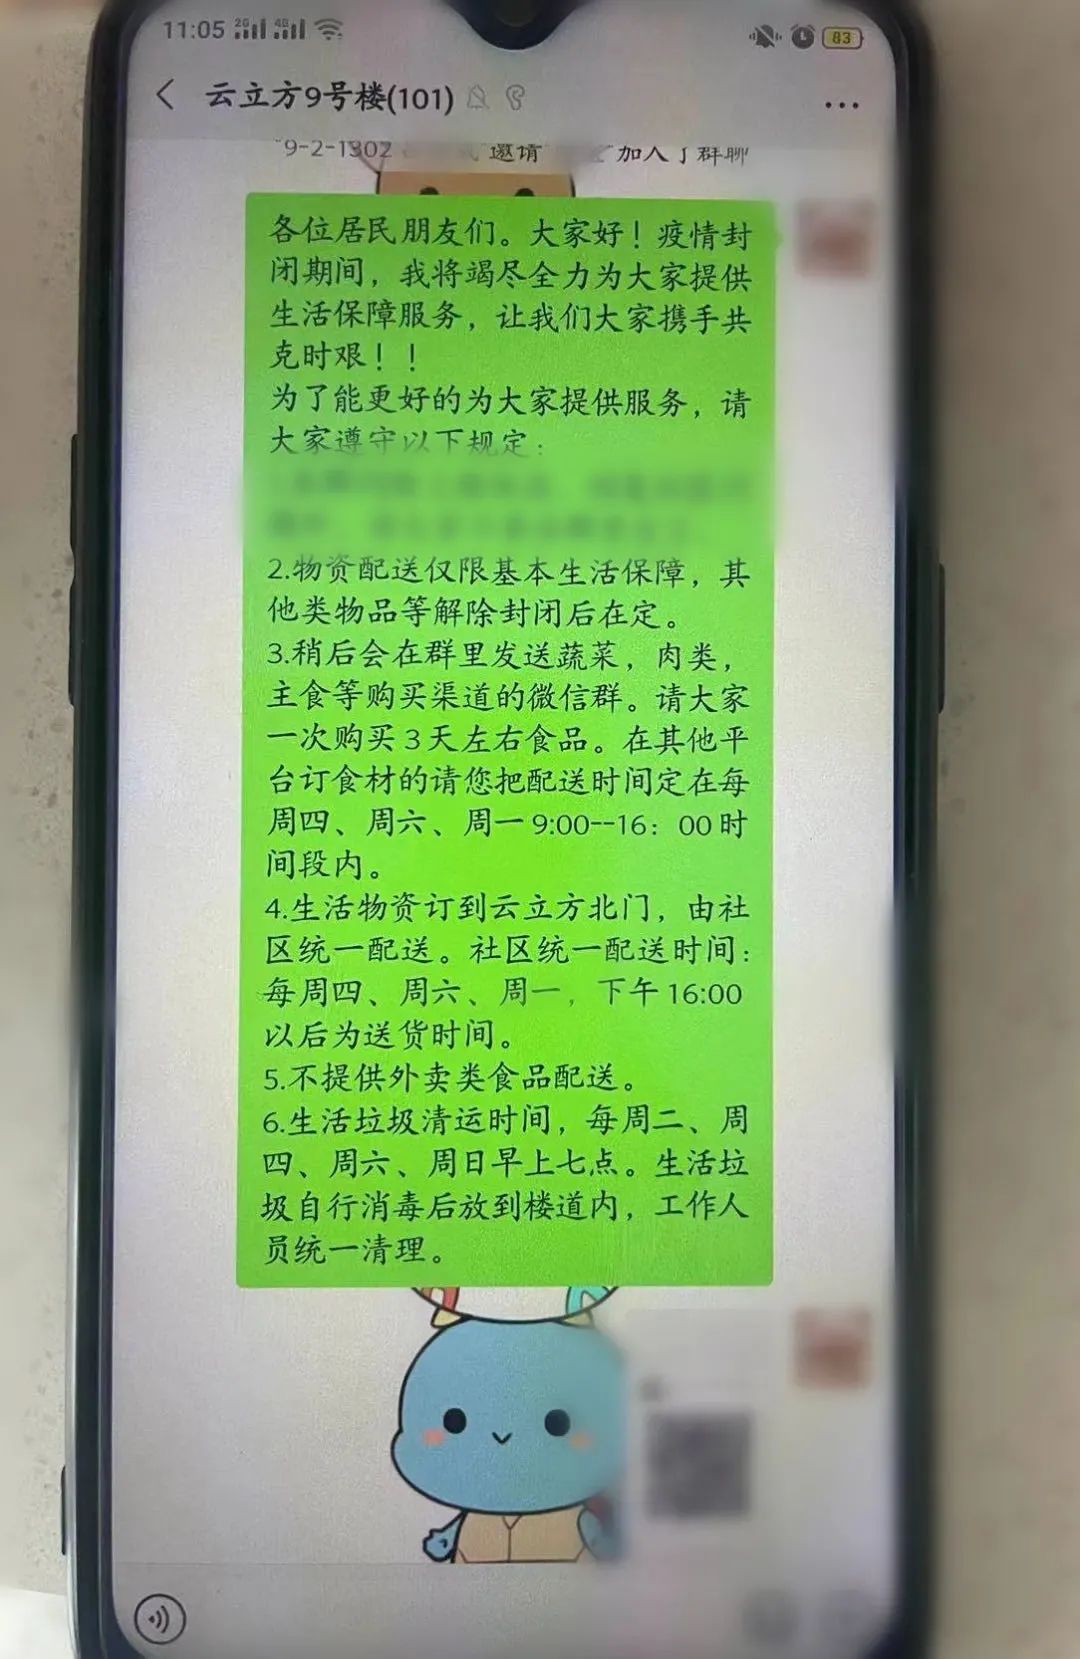 11:05 2G 4G 83
云立方9号楼(101)
"9-2-1302 邀请" "加入了群聊
各位居民朋友们。大家好！疫情封
闭期间，我将竭尽全力为大家提供
生活保障服务，让我们大家携手共
克时艰！！
为了能更好的为大家提供服务，请
大家遵守以下规定：
2.物资配送仅限基本生活保障，其
他类物品等解除封闭后在定。
3.稍后会在群里发送蔬菜，肉类，
主食等购买渠道的微信群。请大家
一次购买3天左右食品。在其他平
台订食材的请您把配送时间定在每
周四、周六、周一9:00--16：00时
间段内。
4.生活物资订到云立方北门，由社
区统一配送。社区统一配送时间：
每周四、周六、周一，下午16:00
以后为送货时间。
5.不提供外卖类食品配送。
6.生活垃圾清运时间，每周二、周
四、周六、周日早上七点。生活垃
圾自行消毒后放到楼道内，工作人
员统一清理。